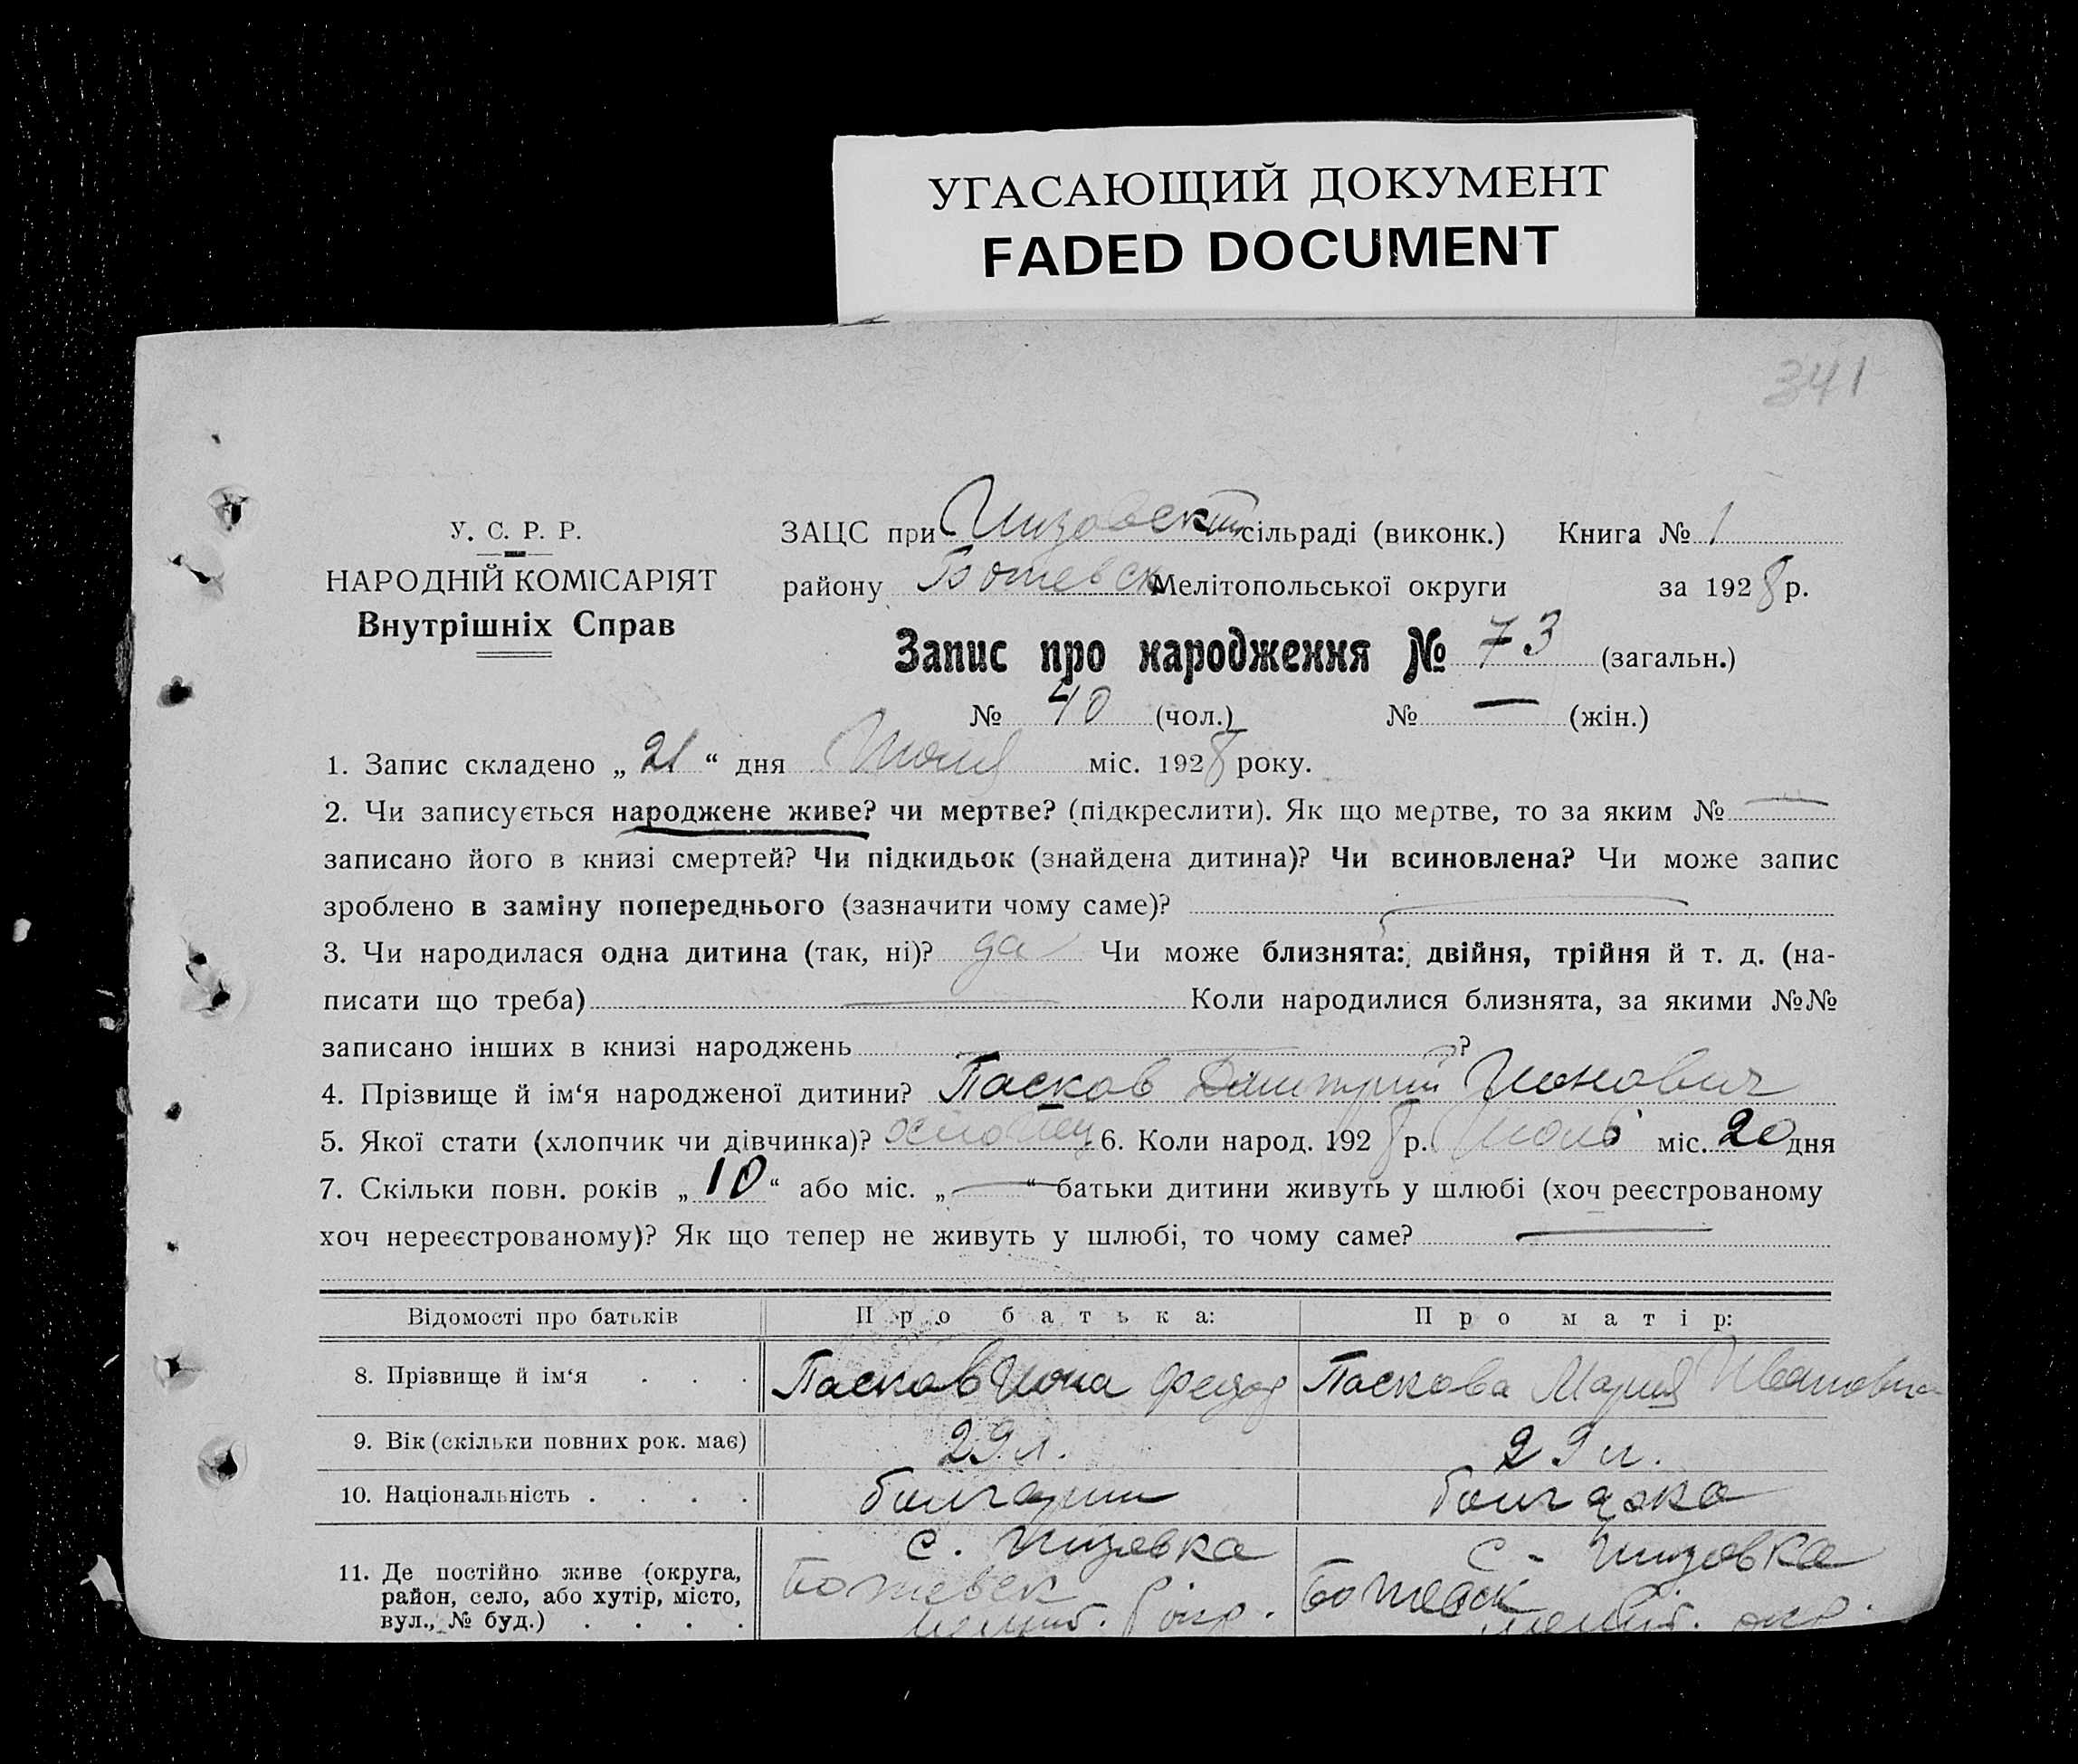 УГАСАЮЩИЙ ДОКУМЕНТ
FADED DOCUMENT
341
У. С. Р. Р.
НАРОДНІЙ КОМІСАРІЯТ
Внутрішніх Справ
ЗАЦС при Инзовский сільраді (виконк.) Книга № 1
району Ботевск Мелітопольської округи за 1928 р.
Запис про народження № 73 (загальн.)
№ 40 (чол.) № — (жін.)
1. Запис складено „ 21 “ дня Июля міс. 1928 року.
2. Чи записується народжене живе? чи мертве? (підкреслити). Як що мертве, то за яким № —
записано його в книзі смертей? Чи підкидьок (знайдена дитина)? Чи всиновлена? Чи може запис
зроблено в заміну попереднього (зазначити чому саме)? —
3. Чи народилася одна дитина (так, ні)? да Чи може близнята: двійня, трійня й т. д. (на-
писати що треба) — Коли народилися близнята, за якими №№
записано інших в книзі народжень — ?
4. Прізвище й ім‘я народженої дитини? Пасков Дмитрий Ионович
5. Якої стати (хлопчик чи дівчинка)? 6. Коли народ. 1928 р. Июль міс. 20 дня
7. Скільки повн. років „ 10 “ або міс. „ — “ батьки дитини живуть у шлюбі (хоч реєстрованому
хоч нереєстрованому)? Як що тепер не живуть у шлюбі, то чому саме? —
Відомості про батьків Про батька: Про матір:
8. Прізвище й ім‘я . . . Пасков Иона Федор Паскова Мария Ивановна
9. Вік (скільки повних рок. має) 29 л. 29 л.
10. Національність . . . . болгарин болгарка
11. Де постійно живе (округа,
район, село, або хутір, місто,
вул., № буд.) . . . .
с. Инзовка
Ботевск
мелит. окр.
с. Инзовка
Ботевск
мелит. окр.